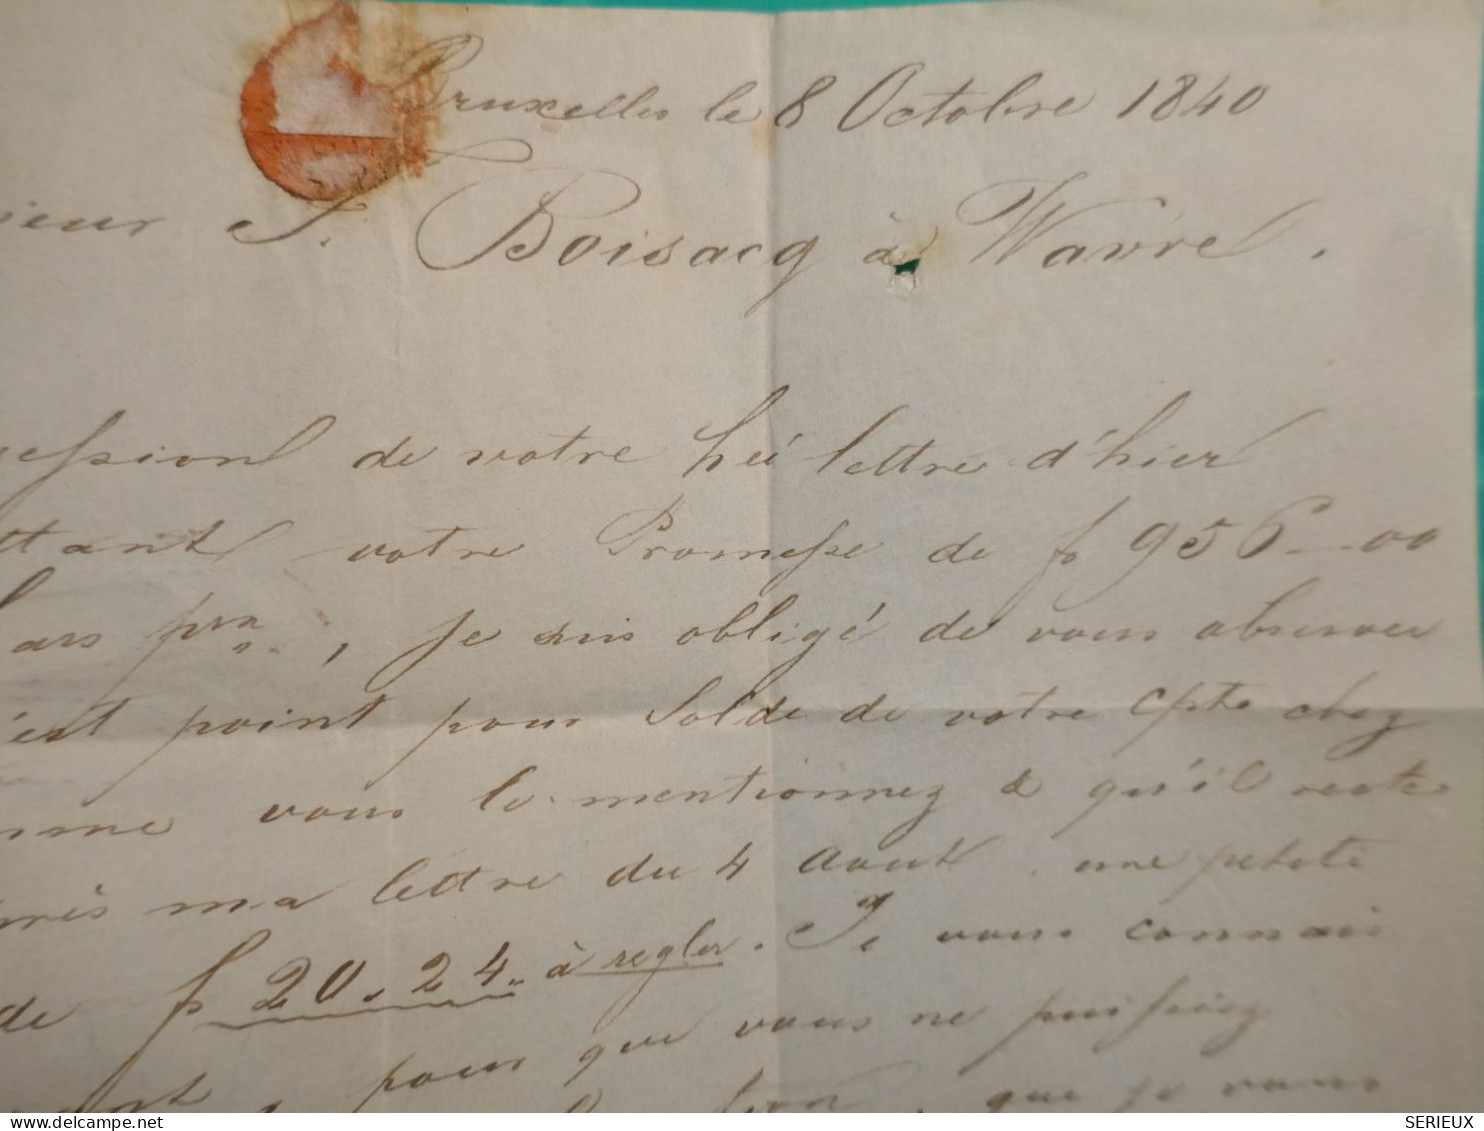 Bruxelles le 8 Octobre 1840
sieur J. Boisacq à Wavre.
session de votre lettre d'hier
ttant votre Promesse de f 956-00
, Je suis obligé de vous observer
'est point pour Solde de votre cpte chez
mme vous le mentionnez & qu'il reste
près ma lettre du 4 aout une petite
de f 20.24 à regler. Je vous connais
pour que vous ne puissiez
que je vous
SERIEUX